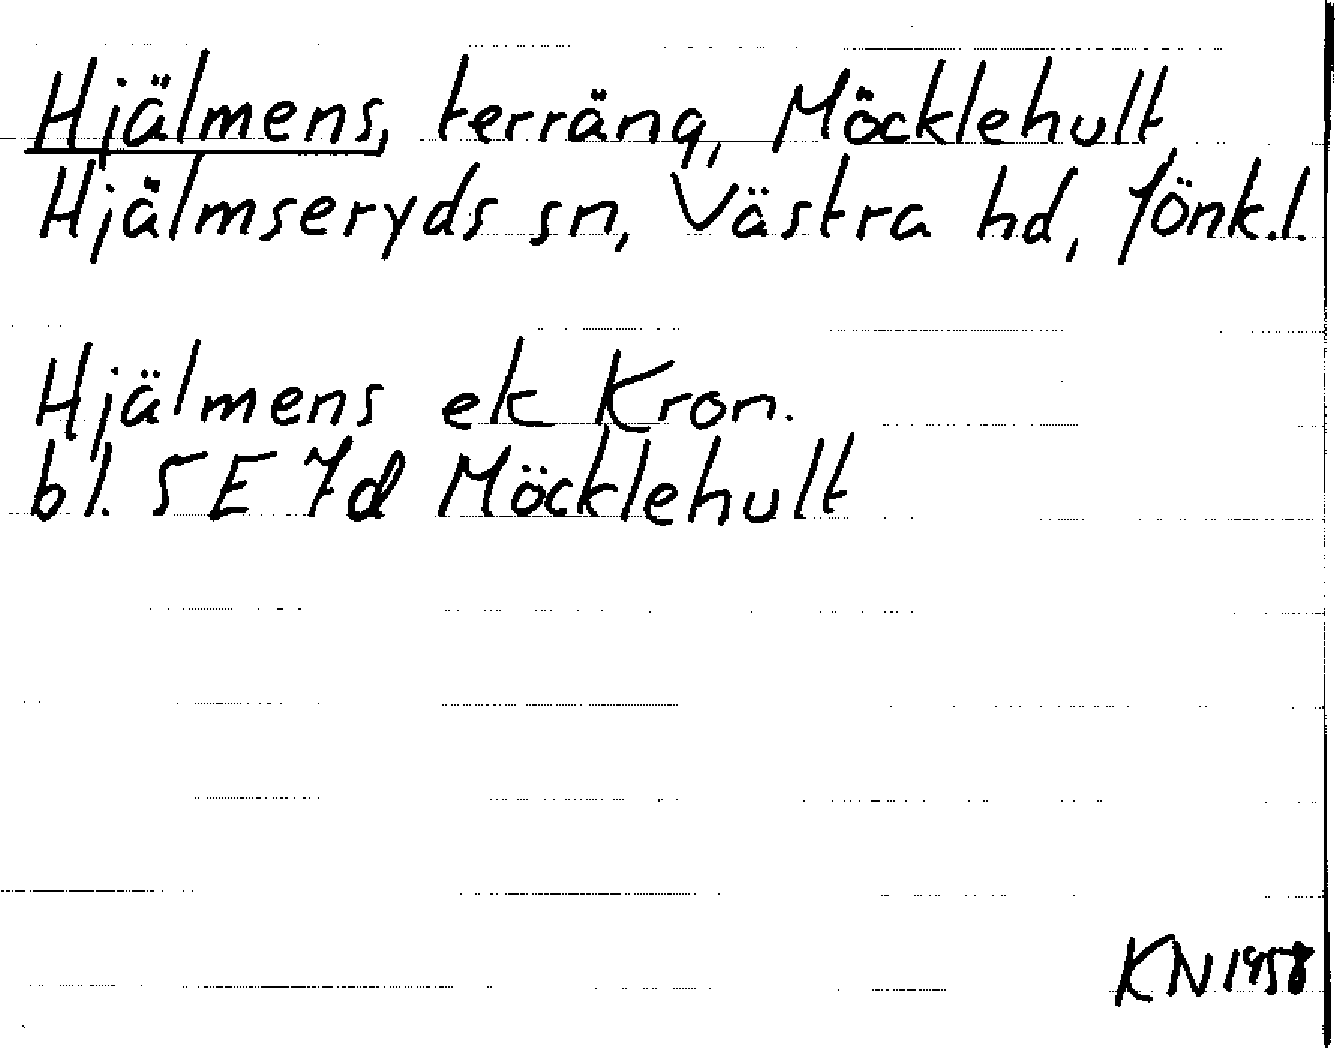 Hjälmens, terräng, Möcklehult
Hjälmseryds sn, Västra hd, Jönk.l.
Hjälmens ek Kron.
bl. 5 E 7d Möcklehult
KN 1958